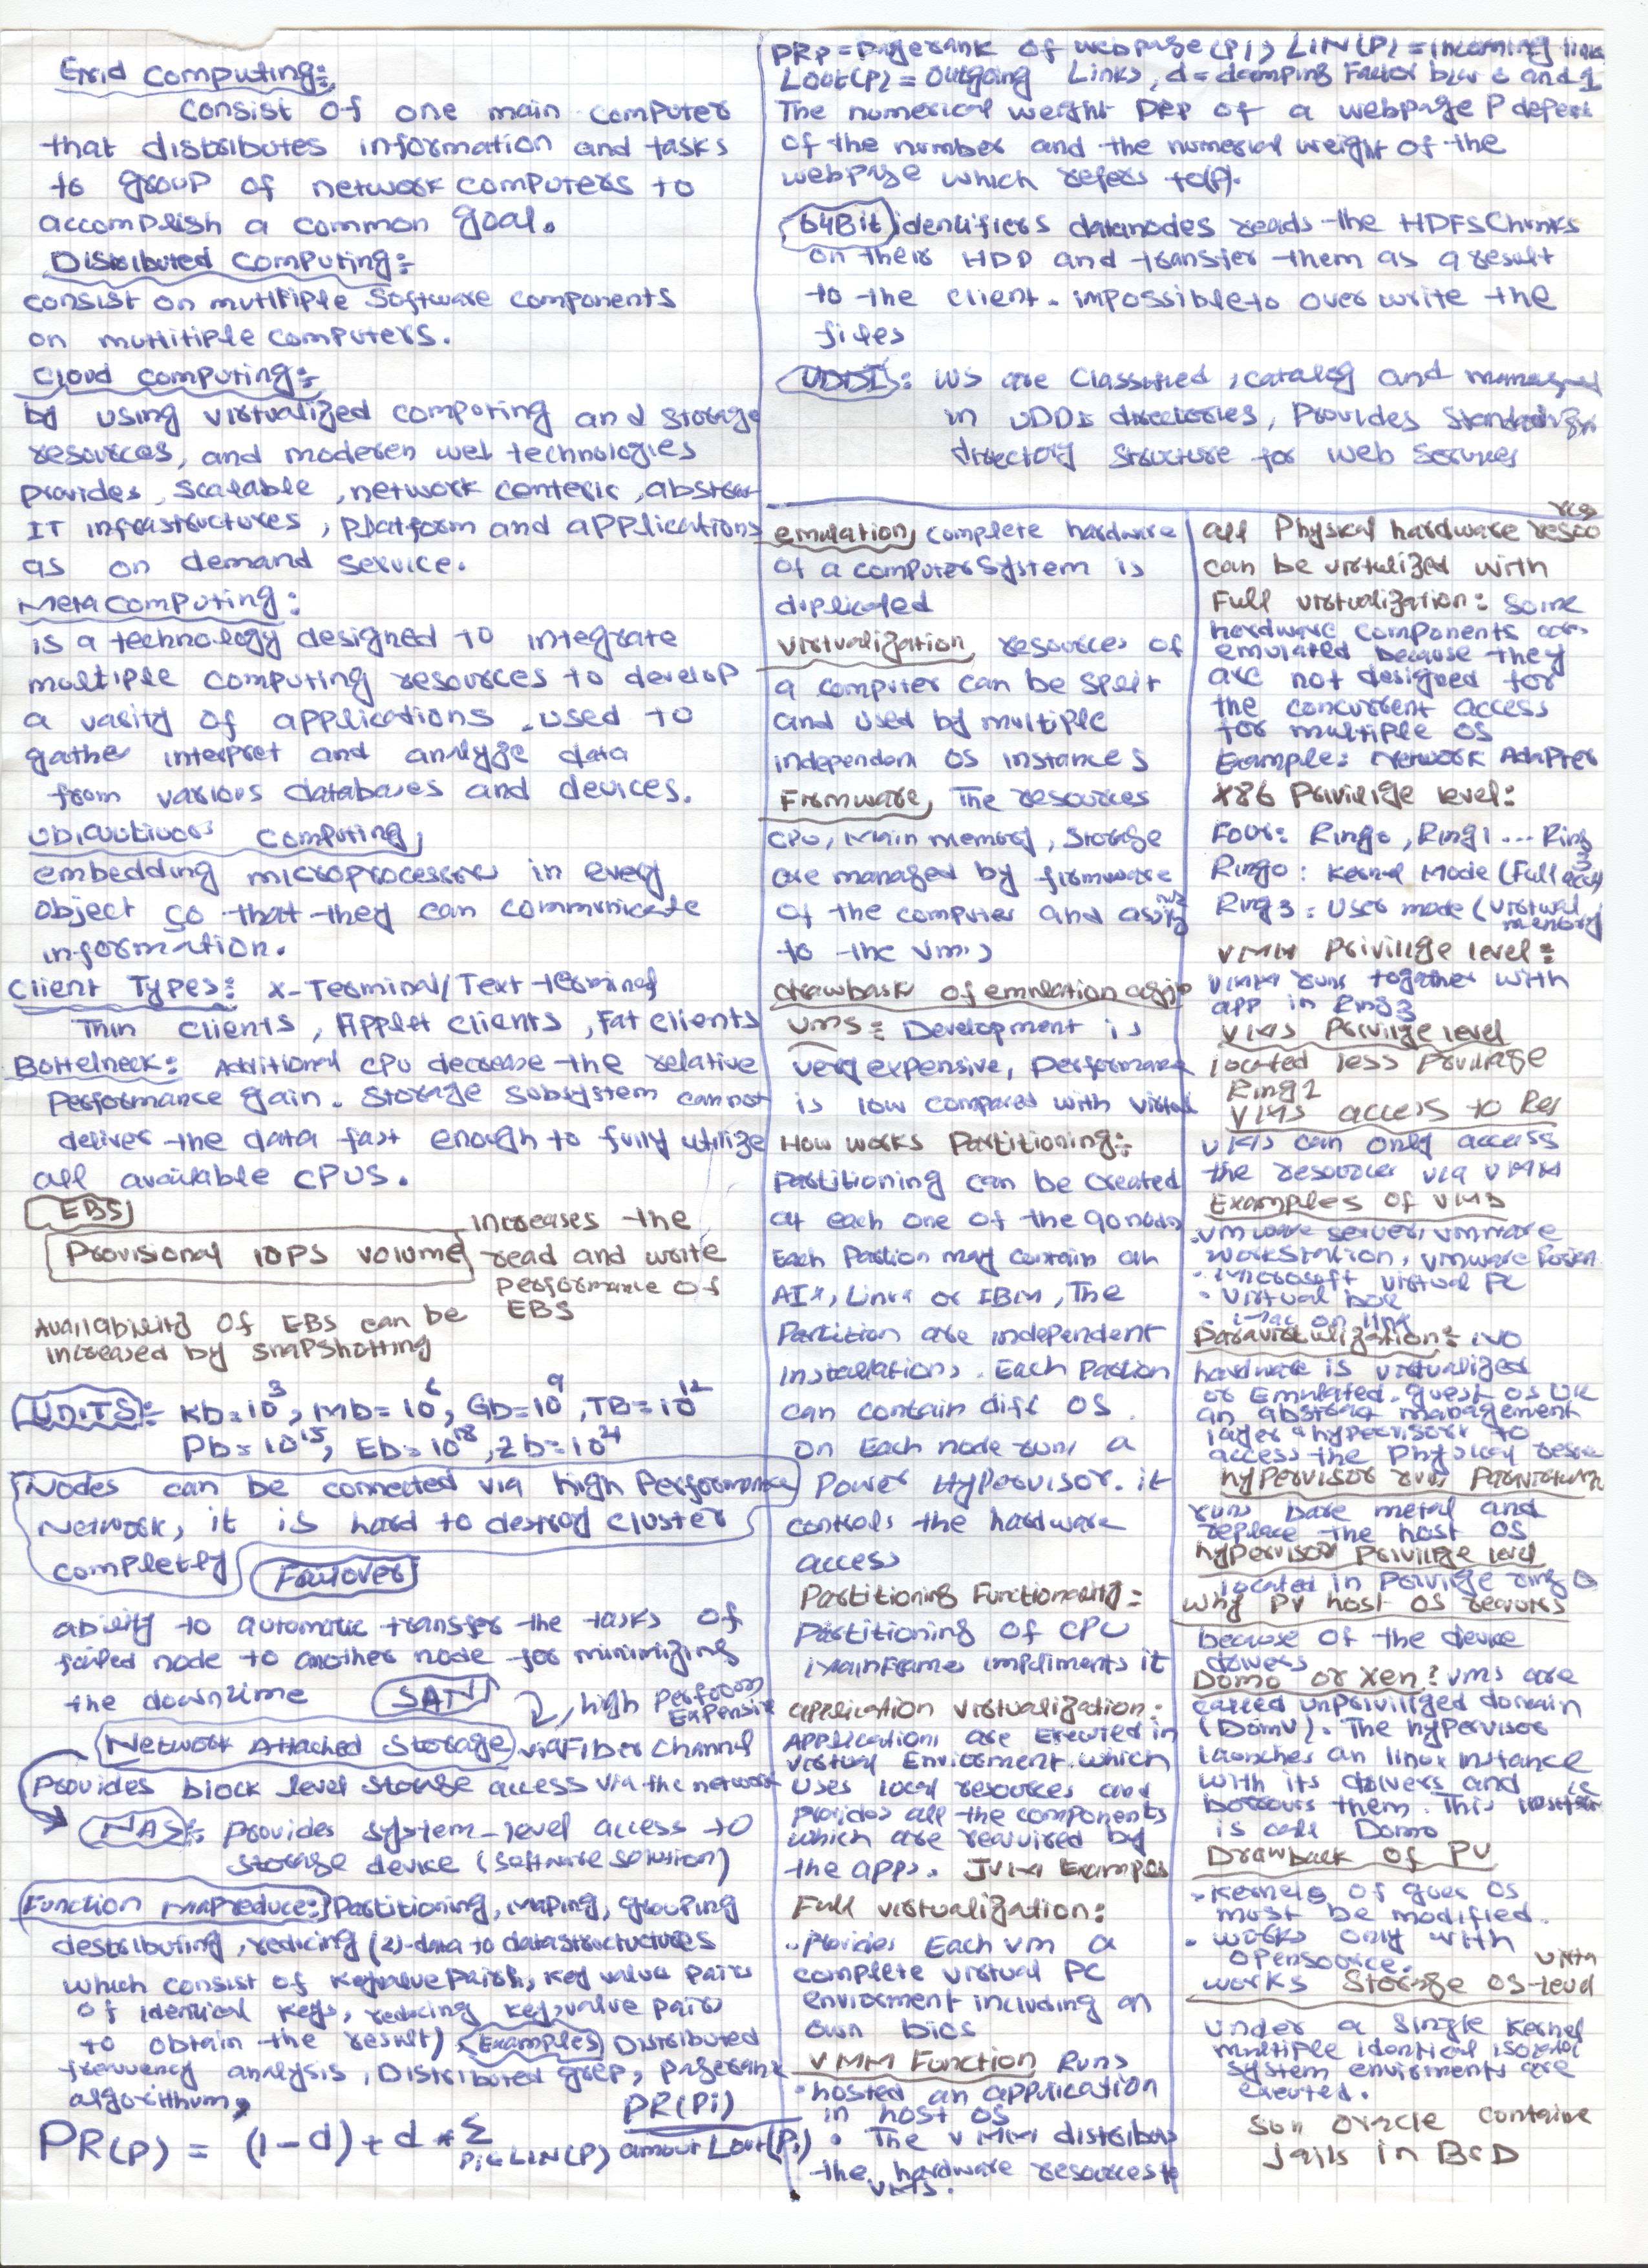 Grid Computing:
Consist of one main computer
that distributes information and tasks
to group of network computers to
accomplish a common goal.
Distributed Computing:
consist on multiple Software components
on multitiple computers.
Cloud computing:
by using virtualized computing and storage
resources, and moderen web technologies
provides, scalable, network centeric, abstract
IT infrastructures, platform and applications
as on demand service.
Meta computing:
is a technology designed to integrate
multiple computing resources to develop
a varity of applications. used to
gather interpret and analyze data
from various databases and devices.
Computing,
embedding microprocessors in every
object so that they can communicate
information.
Client Types: X-Terminal/Text terminal
Thin clients, Applet clients, Fat clients
Bottelneck: Additional CPU decrease the relative
performance gain. Storage subsystem cannot
deliver the data fast enough to fully utilize
all available CPUS.
EBS
Provisional IOPS volume
increases the
read and write
performance of
EBS
Availability of EBS can be
increased by snapshotting
UNITS: Kb=10^3, Mb=10^6, Gb=10^9, TB=10^12
Pb=10^15, Eb=10^18, Zb=10^21
Nodes can be connected via high Performance
Network, it is hard to destroy cluster
completly
Failover
ability to automatic transfer the tasks of
failed node to another node for minimizing
the downtime
SAN
high perform
Expensive
Network Attached Storage via Fiber channel
Provides block level storage access via the network
NAS: Provides system-level access to
storage device (software solution)
Function MapReduce: Partitioning, Maping, grouping
destributing, redicing (2)-data to datastructuctures
which consist of key value pairs, key value pairs
of identical keys, reducing key value pairs
to obtain the result) Examples Distributed
frequency analysis, Distributed grep, pagerank
algorithum,
PR(P) = (1-d) + d * Σ Pi∈LIN(P) PR(Pi) / amout Lout(Pi)
PRP = Pagerank of webpage (P), LIN(P) = incoming link
Lout(P) = Outgoing Links, d = damping Factor b/w 0 and 1
The numerical weight PRP of a webpage P
of the number and the numerial weight of the
webpage which refers to(P).
64Bit identifiers datanodes reads the HDFS Chunks
on their HDD and transfer them as a result
to the client. impossible to over write the
files
UDDI: WS are Classified, catalog and managed
in UDDI directories, Provides
directory structure for web services
emulation, complete hardware
of a computer system is
duplicated
virtualization, resources of
a computer can be split
and used by multiple
independent OS instances
Firmware, The resources
CPU, Main memory, Storage
are managed by firmware
of the computer and
to the vms
drawback of emulation
VMS: Development is
very expensive, performance
is low compared with virtual
How works Partitioning:
Partitioning can be created
at each one of the nodes
Each Partion may contain an
AIX, Linux or IBM, The
Partition are independent
installations. Each Partion
can contain diff OS.
on Each node runs a
Power Hypervisor. it
controls the hardware
access
Partitioning Functionality:
Partitioning of CPU
Mainframes impliments it
application virtualization:
applications are Executed in
virtual Enviroment. which
uses local resources and
provides all the components
which are required by
the apps. JVM Examples
Full virtualization:
. provides Each vm a
complete virtual PC
enviorment including an
own bios
VMM Function Runs
. hosted an application
in host OS
. The VMM distributes
the hardware resources to
VMS.
all Physical hardware resources
can be virtulized with
Full virtualization: Some
hardware components are
emulated because they
are not designed for
the concurrent access
for multiple OS
Example: Network Adapter
X86 Privilige level:
Four: Ring0, Ring1 ... Ring 3
Ring0: Kernel Mode (Full access)
Ring3: User mode (virtual
memory)
VMM Privilige level:
VMM runs together with
app in Ring3
VMS Privilge level
located less privilage
Ring1
VMS access to Res
VMS can only access
the resources via VMM
Examples of VMS
. vmware server, vmware
workstation, vmware fusion
. Microsoft virtual PC
. Virtual box
Paravirtulization: No
hardware is virtualized
or Emulated. guest os use
an abstract management
layer (hypervisor) to
access the physical
hypervisor runs Paravirtu
runs bare metal and
replace the host OS
hypervisor privilige level
located in privilge ring 0
why PV host OS requirs
because of the device
Dom0 or Xen: vms are
called unprivilliged domain
(DomU). The hypervisor
launches an linux instance
with its drivers and
borrows them. This instance is
is call Dom0
Drawback of PV
. Kernels of gues OS
must be modified.
. works only with
opensource.
works Storage OS-level
under a single kernel
multiple identical isolated
system enviroments are
executed.
Sun oracle container
Jails in BSD